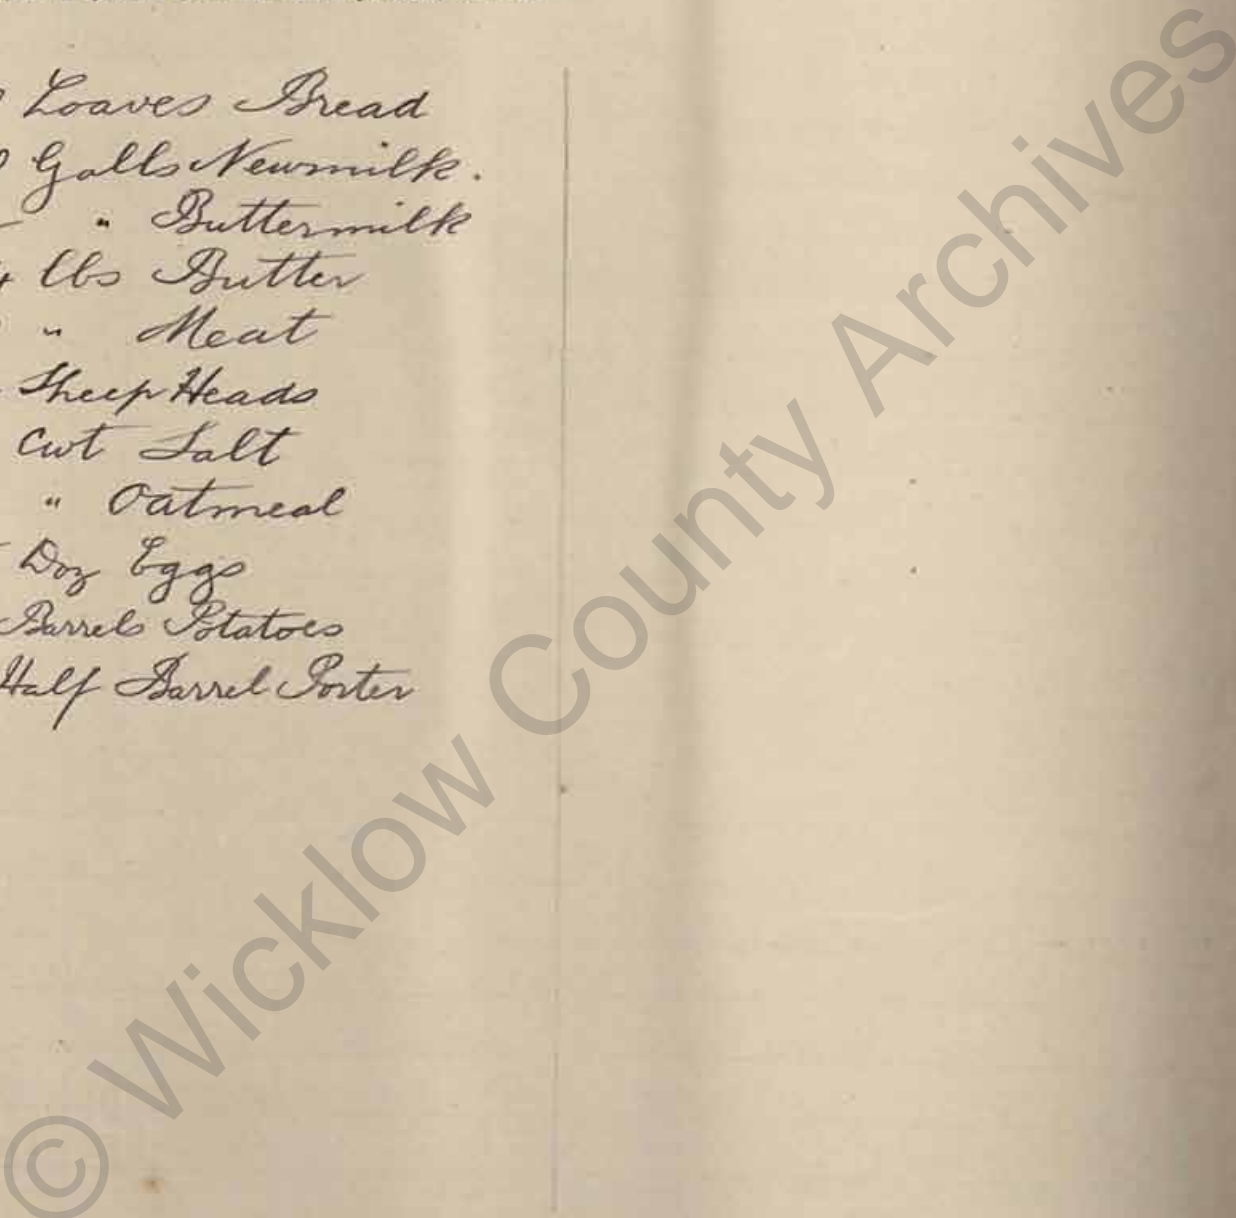 Loaves Bread
Galls Newmilk.
" Buttermilk
lbs Butter
" Meat
Sheep Heads
Cwt Salt
" Oatmeal
Doz Eggs
Barrels Potatoes
Half Barrel Porter
© Wicklow County Archives